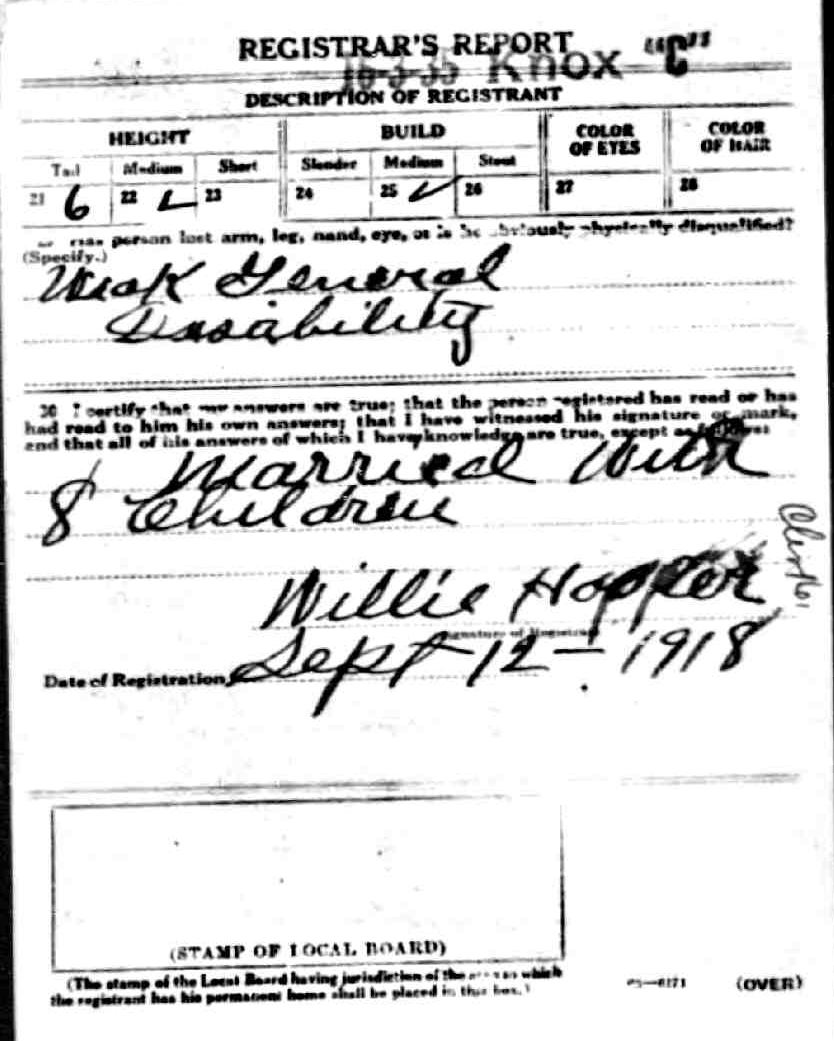 REGISTRAR'S REPORT
16-3-35 Knox "C"
DESCRIPTION OF REGISTRANT
HEIGHT BUILD COLOR OF EYES COLOR OF HAIR
Tall Medium Short Slender Medium Stout
21 6 22 ✓ 23 24 25 ✓ 26 27 28
person lost arm, leg, hand, eye, or is he obviously physically disqualified?
(Specify.)
Weak General
Disability
30 I certify that my answers are true; that the person registered has read or has
had read to him his own answers; that I have witnessed his signature or mark,
and that all of his answers of which I have knowledge are true, except as follows:
Married With
8 Children
Willie Hopper
Signature of Registrar
Date of Registration Sept-12-1918
(STAMP OF LOCAL BOARD)
(The stamp of the Local Board having jurisdiction of the area in which
the registrant has his permanent home shall be placed in this box.)
(OVER)